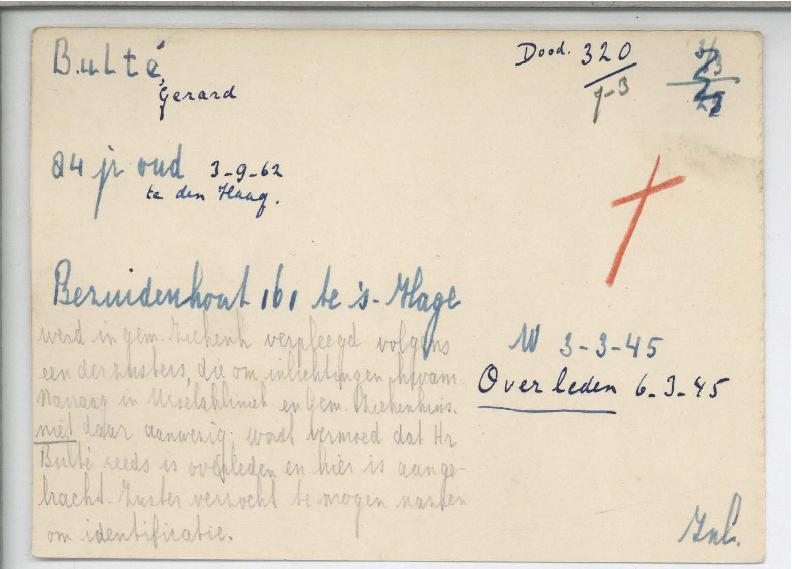 Bulté,
Gerard
Dood. 320
7-3
84 jr oud 3-9-62
te den Haag.
Bezuidenhout 161 te 's-Hage
werd in gem. Ziekenh verpleegd volgens
een der zusters, die om inlichtingen kwam
Navraag in Ursulakliniek en Gem. Ziekenhuis.
niet daar aanwezig. wordt vermoed dat Hr
Bulté reeds is overleden en hier is aange-
bracht. Zuster verzocht te mogen
om identificatie.
W 3-3-45
Overleden 6-3-45